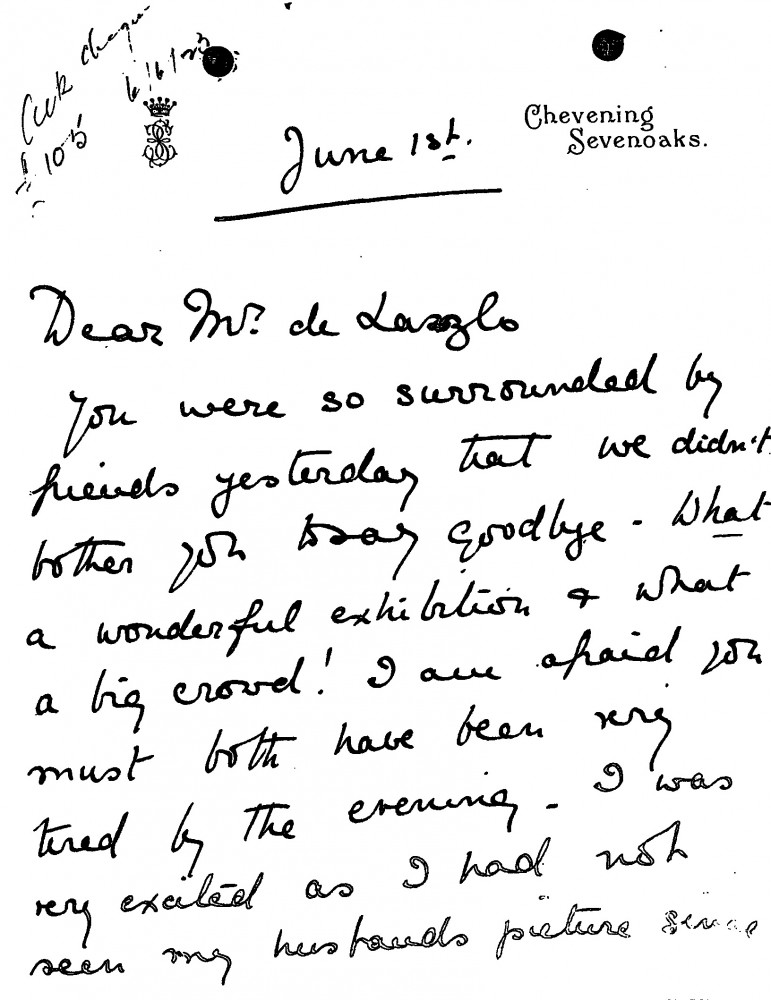 Ack cheque
£105
6/6/23
Chevening
Sevenoaks.
June 1st.
Dear Mr. de Laszlo
You were so surrounded by
friends yesterday that we didn't
bother you to say goodbye - What
a wonderful exhibition & what
a big crowd! I am afraid you
must both have been very
tired by the evening - I was
very excited as I had not
seen my husbands picture since